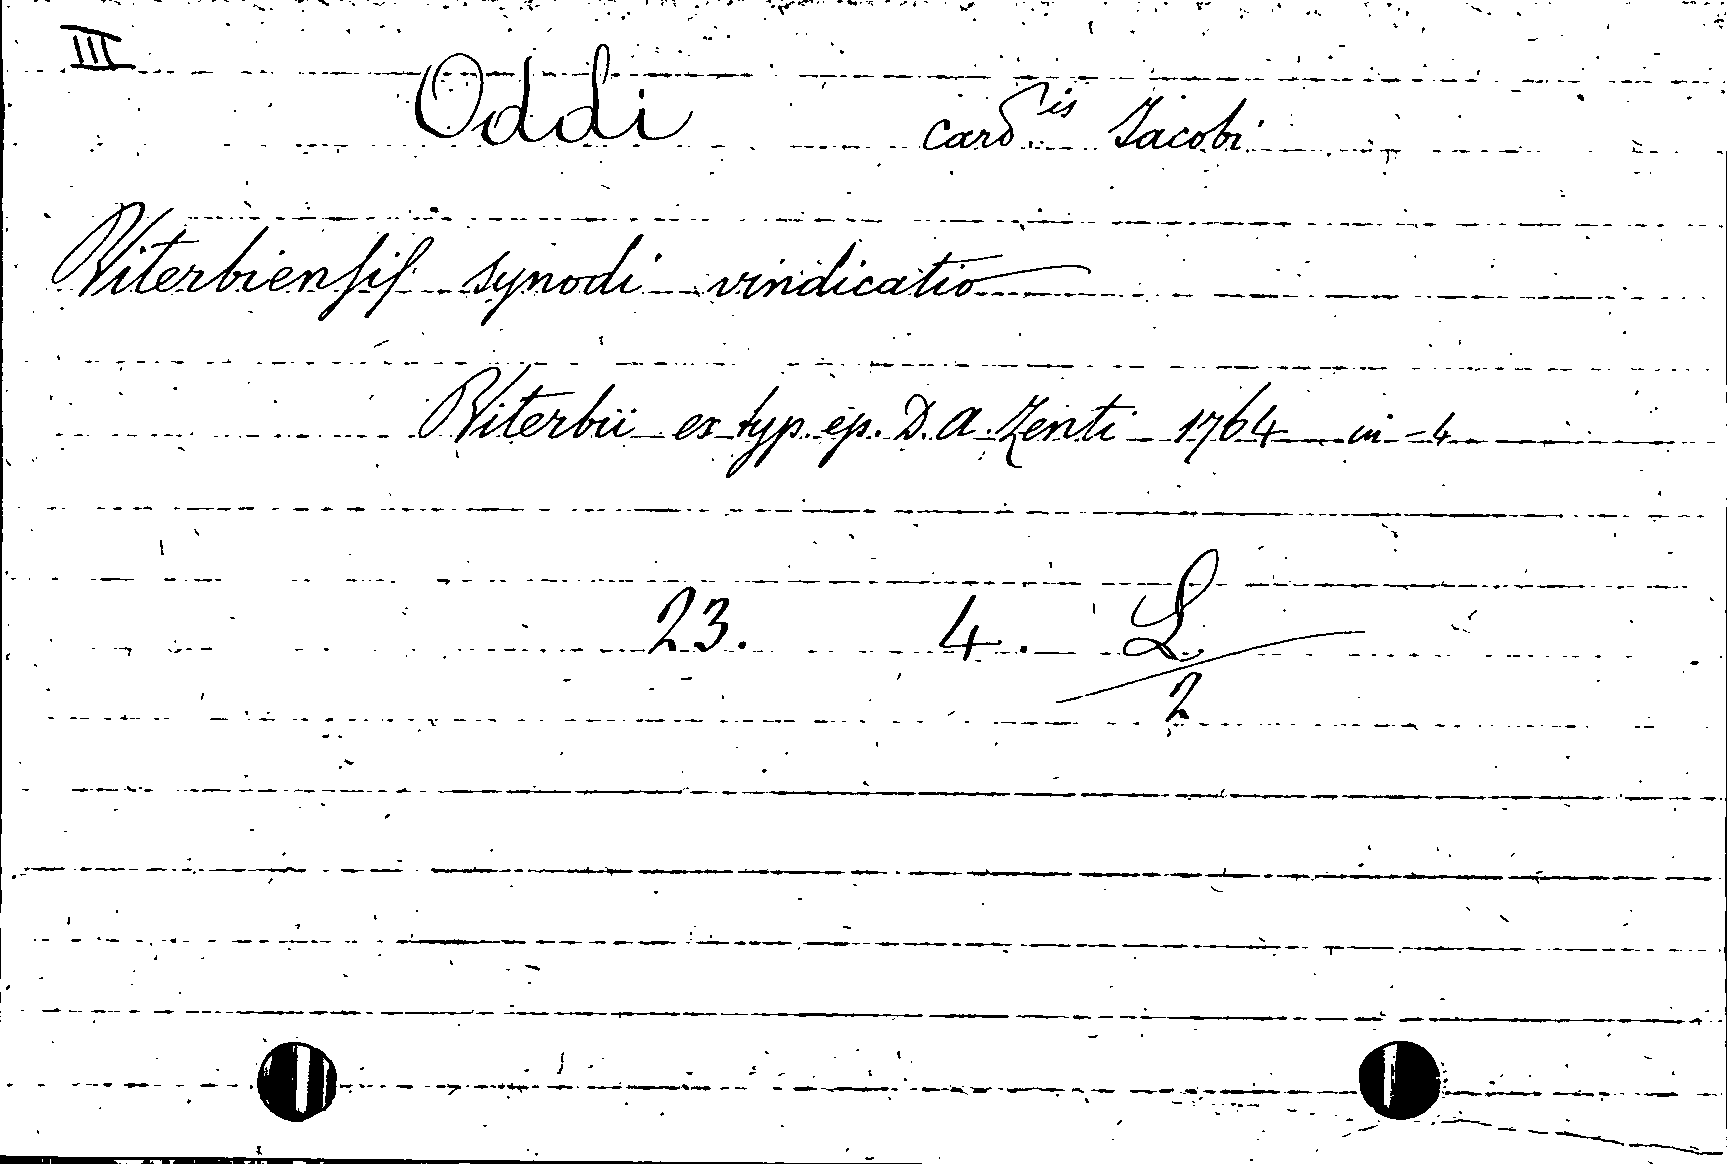 III
Oddi Card.is Jacobi
Viterbiensis synodi vindicatio
Viterbii ex typ. ep. D. A. Zenti 1764 in-4
23. 4. L
2